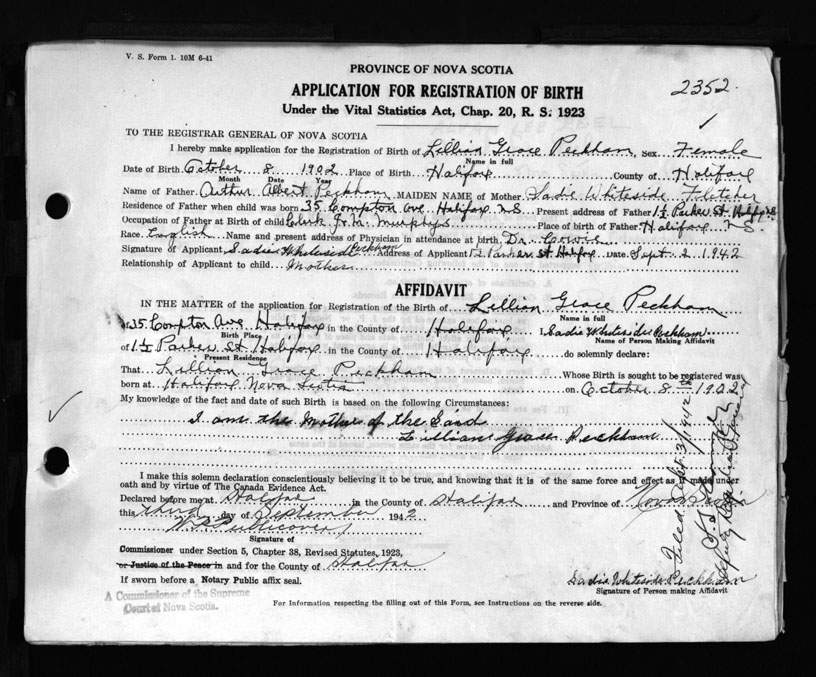 V. S. Form 1. 10M 6-41
PROVINCE OF NOVA SCOTIA
2352
APPLICATION FOR REGISTRATION OF BIRTH
Under the Vital Statistics Act, Chap. 20, R. S. 1923
TO THE REGISTRAR GENERAL OF NOVA SCOTIA
I hereby make application for the Registration of Birth of Lillian Grace Peckham, Sex Female
Name in full
Date of Birth October 8 1902 Place of Birth Halifax County of Halifax
Month Date Year
Name of Father Arthur Albert Peckham MAIDEN NAME of Mother Sadie Whiteside Fletcher
Residence of Father when child was born 35 Compton Ave. Halifax N.S. Present address of Father 1½ Parker St. Halifax N.S.
Occupation of Father at Birth of child Clerk J. & M. Murphys Place of birth of Father Halifax N.S
Race English Name and present address of Physician in attendance at birth Dr. Cowie
Signature of Applicant Sadie Whiteside Peckham Address of Applicant 1½ Parker St Halifax Date Sept. 2 1942
Relationship of Applicant to child Mother
AFFIDAVIT
IN THE MATTER of the application for Registration of the Birth of Lillian Grace Peckham
Name in full
of 35 Compton Ave Halifax in the County of Halifax I, Sadie Whiteside Peckham
Birth Place Name of Person Making Affidavit
of 1½ Parker St Halifax in the County of Halifax do solemnly declare:
Present Residence
That Lillian Grace Peckham Whose Birth is sought to be registered was
born at Halifax Nova Scotia on October 8th 1902
My knowledge of the fact and date of such Birth is based on the following Circumstances:
I am the Mother of the Said
Lillian Grace Peckham
I make this solemn declaration conscientiously believing it to be true, and knowing that it is of the same force and effect as if made under
oath and by virtue of The Canada Evidence Act.
Declared before me at Halifax in the County of Halifax and Province of Nova Scotia
this third day of September 1942
Signature of
Commissioner under Section 5, Chapter 38, Revised Statutes, 1923,
or Justice of the Peace in and for the County of Halifax
If sworn before a Notary Public affix seal.
Sadie Whiteside Peckham
Signature of Person making Affidavit
A Commissioner of the Supreme
Court of Nova Scotia.
For Information respecting the filling out of this Form, see Instructions on the reverse side.
Filed Sept. 3/1942
Deputy Registrar General